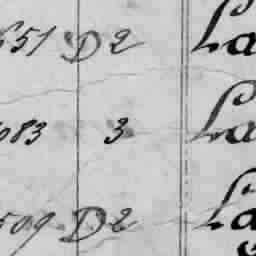 651 D 2 La
083 3 La
509 D 2 La